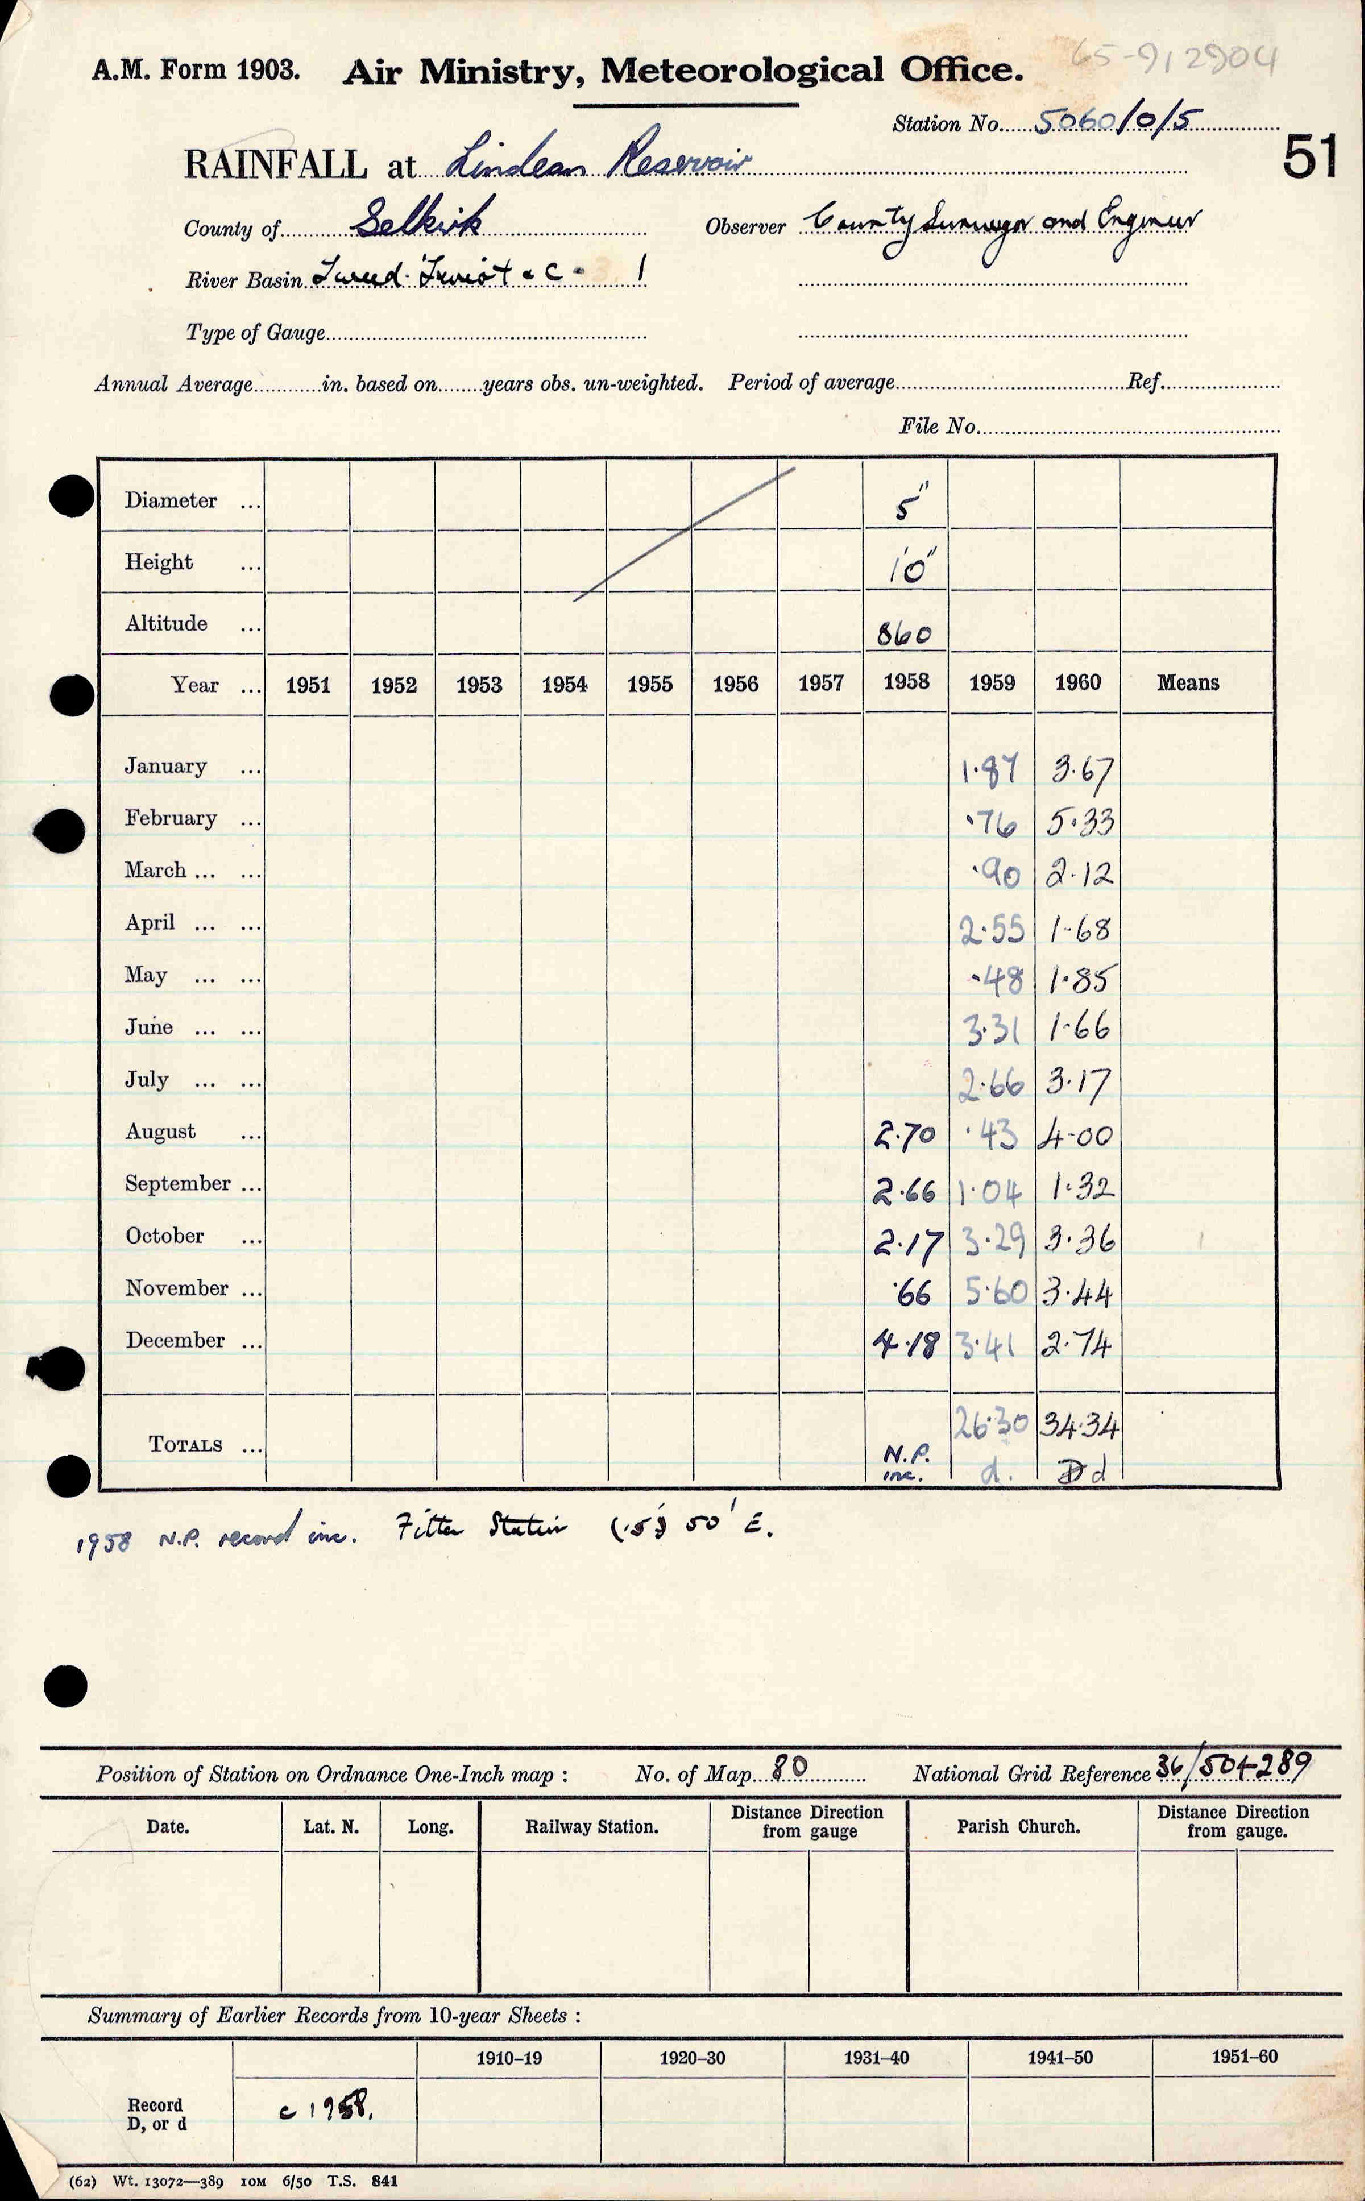 65-912904
A.M. Form 1903. Air Ministry, Meteorological Office.
Station No. 5060/0/5
51
RAINFALL at Lindean Reservoir
County of Selkirk Observer County Surveyor and Engineer
River Basin Tweed. Teviot & C - 1
Type of Gauge
Annual Average in. based on years obs. un-weighted. Period of average Ref.
File No.
Diameter ... 5"
Height ... 10"
Altitude ... 860
Year ... 1951 1952 1953 1954 1955 1956 1957 1958 1959 1960 Means
January ... 1.87 3.67
February ... .76 5.33
March ... ... .90 2.12
April ... ... 2.55 1.68
May ... ... .48 1.85
June ... ... 3.31 1.66
July ... ... 2.66 3.17
August ... 2.70 .43 4.00
September ... 2.66 1.04 1.32
October ... 2.17 3.29 3.36
November ... .66 5.60 3.44
December ... 4.18 3.41 2.74
TOTALS ... 26.30 34.34
N.P. inc. d. D d
1958 N.P. record inc. Filter Station 50' E.
Position of Station on Ordnance One-Inch map : No. of Map 80 National Grid Reference 36/504289
Date. Lat. N. Long. Railway Station. Distance Direction from gauge Parish Church. Distance Direction from gauge.
Summary of Earlier Records from 10-year Sheets :
1910-19 1920-30 1931-40 1941-50 1951-60
Record D, or d c 1958.
(62) Wt. 13072—389 IOM 6/50 T.S. 841